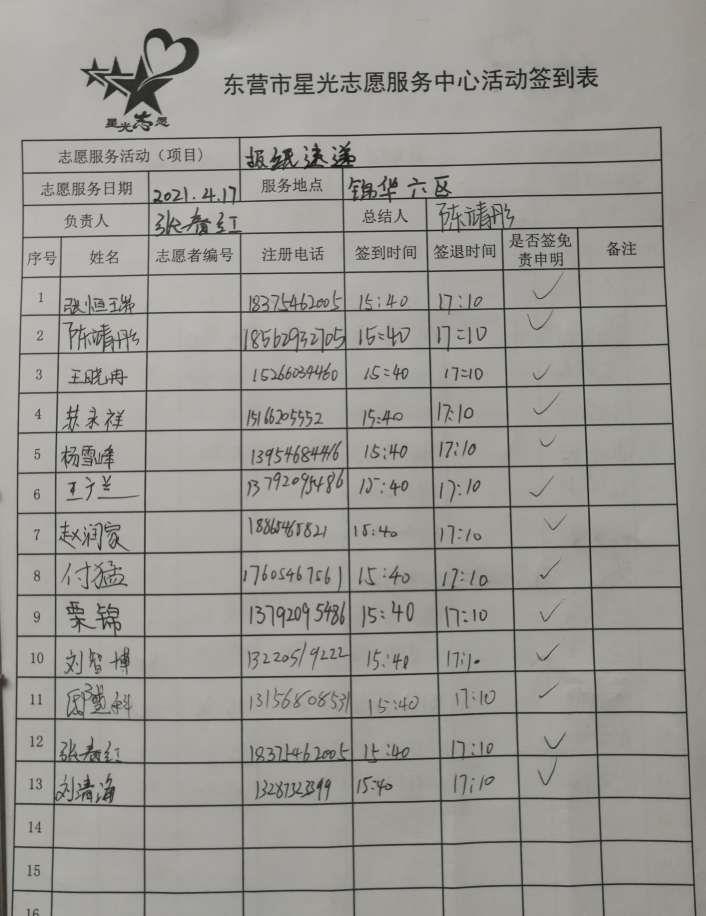 星光志愿
东营市星光志愿服务中心活动签到表
志愿服务活动（项目） 报纸速递
志愿服务日期 2021.4.17 服务地点 锦华六区
负责人 张春红 总结人 陈靖彤
序号 姓名 志愿者编号 注册电话 签到时间 签退时间 是否签免责申明 备注
1 张恒 18375462005 15:40 17:10 ✓
2 陈靖彤 18562932705 15:40 17:10 ✓
3 王晓冉 15266034460 15:40 17:10 ✓
4 苏永祥 15166205552 15:40 17:10 ✓
5 杨雪峰 13954684416 15:40 17:10 ✓
6 王广兰 13792095486 15:40 17:10 ✓
7 赵润家 18865465821 15:40 17:10 ✓
8 付猛 17605467561 15:40 17:10 ✓
9 栗锦 13792095486 15:40 17:10 ✓
10 刘智博 13220519222 15:40 17:10 ✓
11 13156808531 15:40 17:10 ✓
12 张春红 18375462005 15:40 17:10 ✓
13 刘清海 13287323399 15:40 17:10 ✓
14
15
16